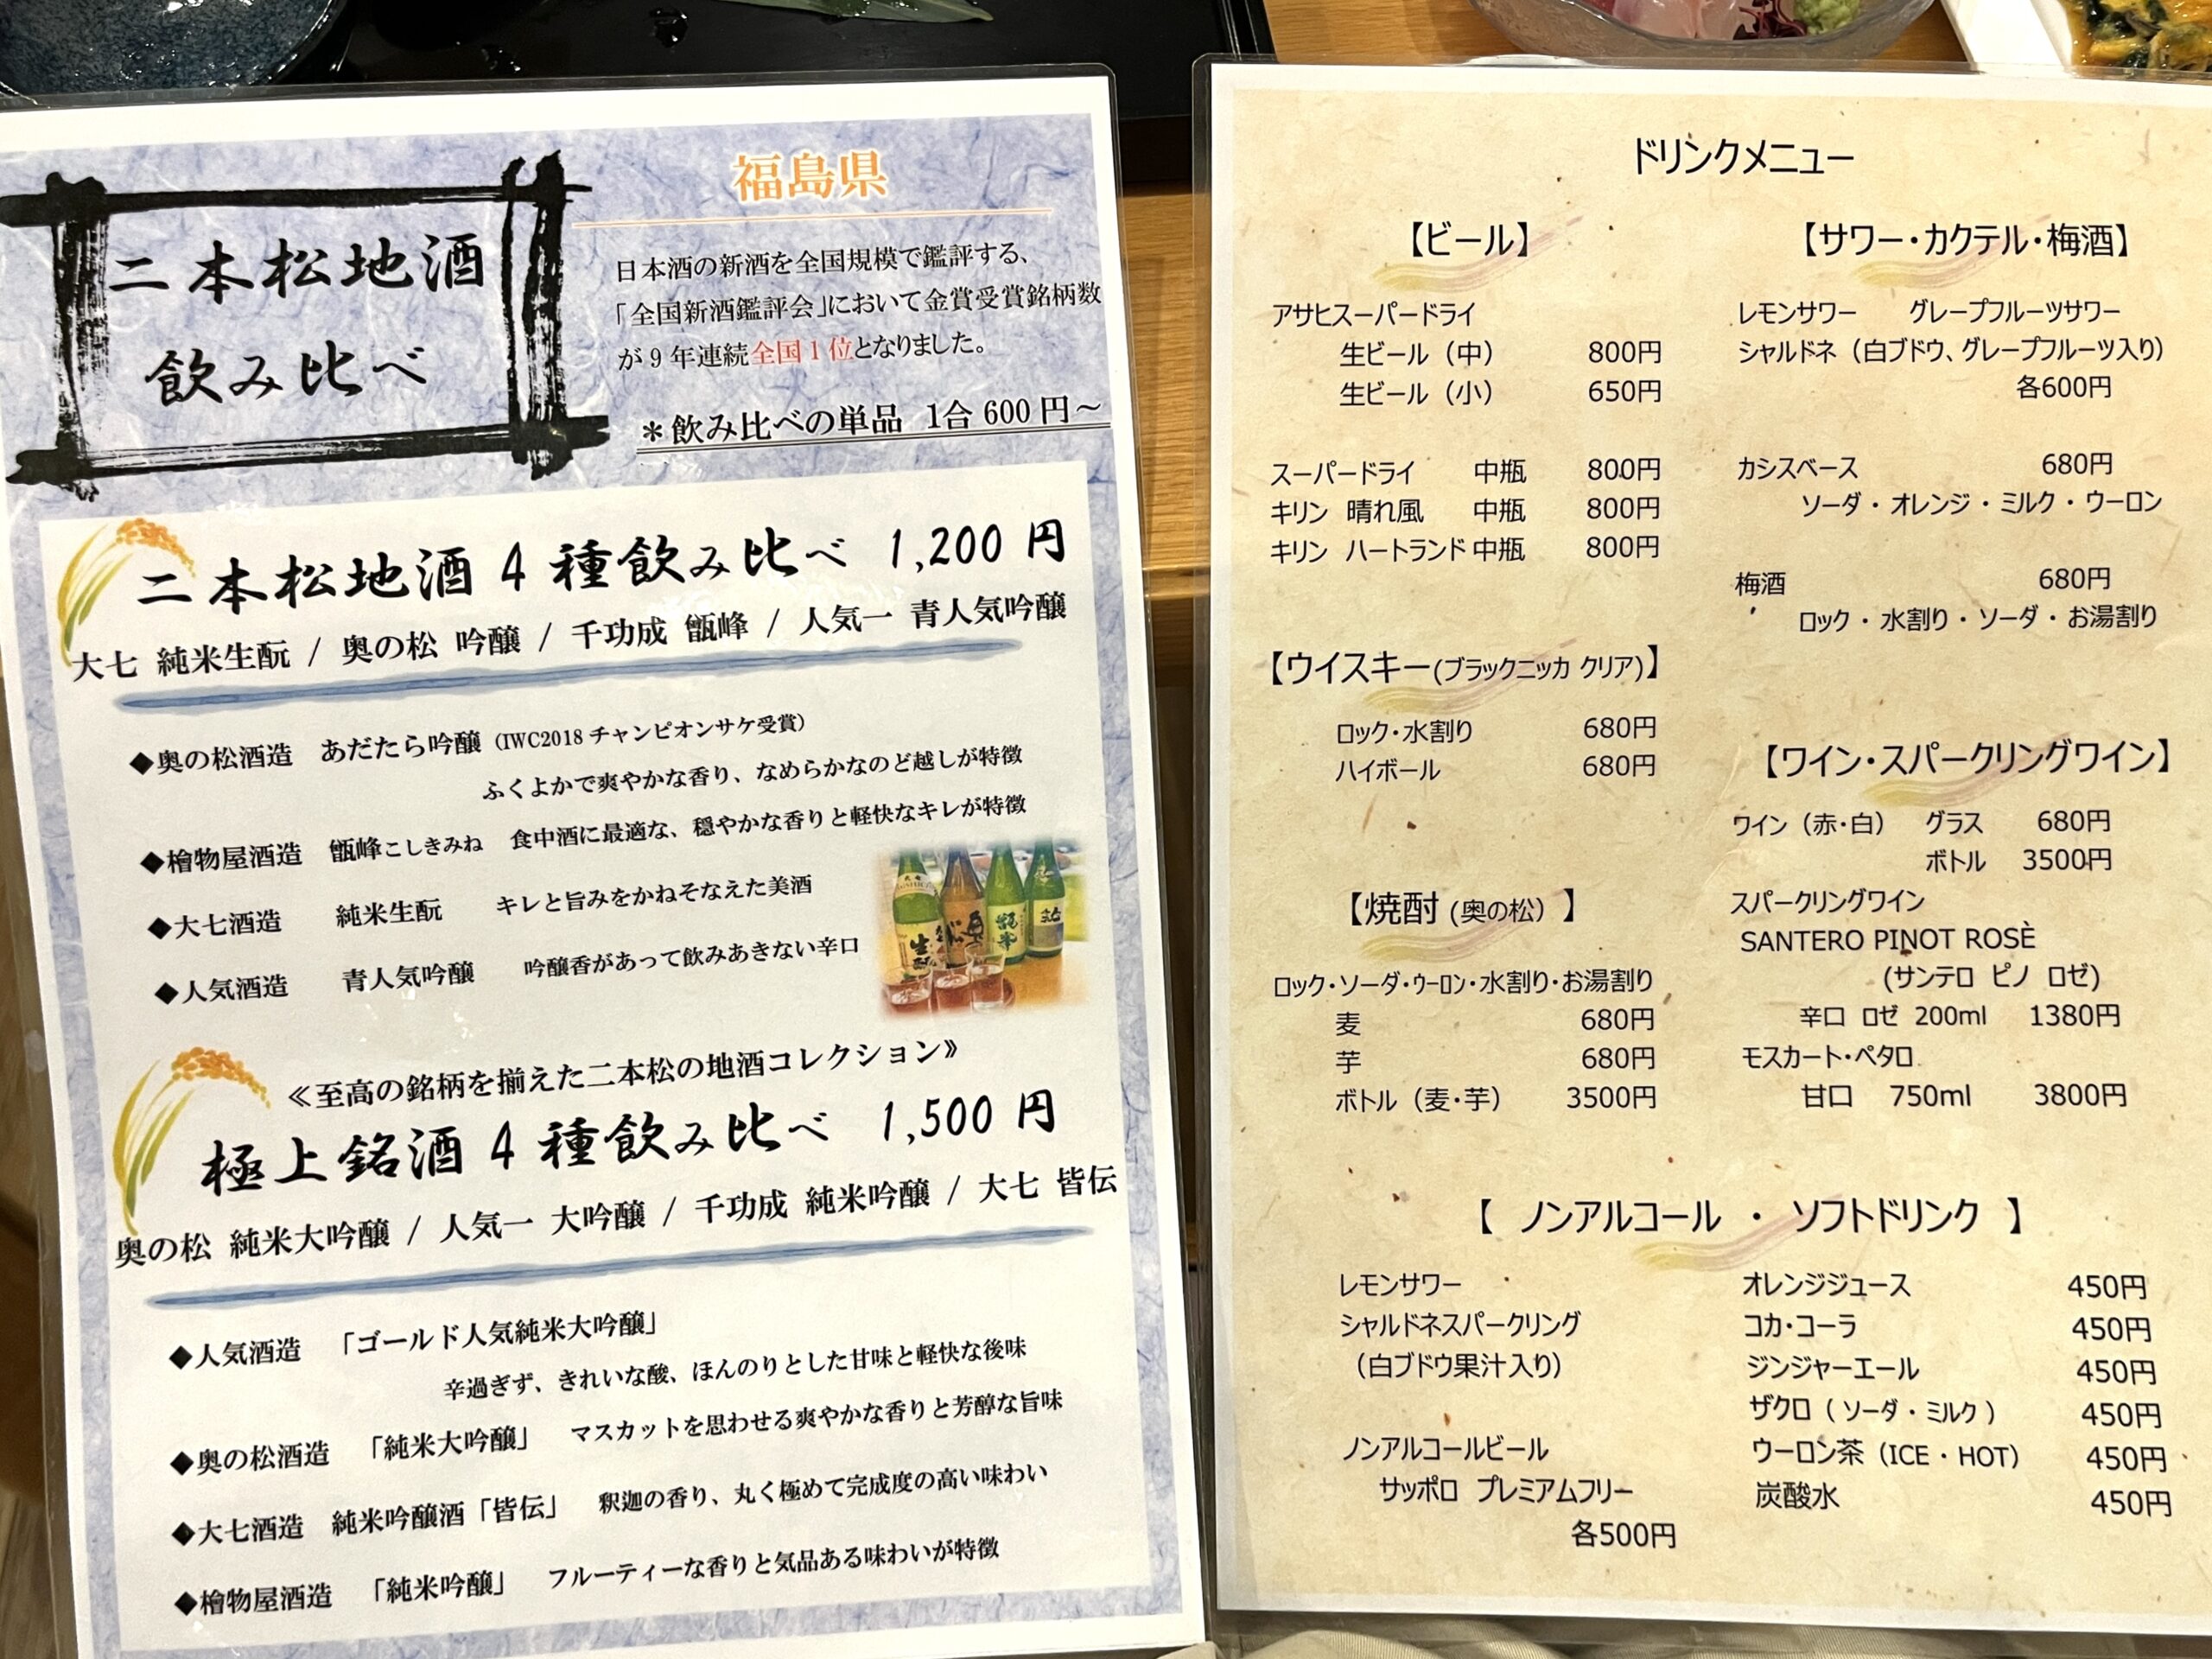 二本松地酒
飲み比べ
福島県
日本酒の新酒を全国規模で鑑評する、
「全国新酒鑑評会」において金賞受賞銘柄数
が9年連続全国1位となりました。
＊飲み比べの単品 1合600円～
二本松地酒4種飲み比べ 1,200円
大七 純米生酛 / 奥の松 吟醸 / 千功成 甑峰 / 人気一 青人気吟醸
◆奥の松酒造 あだたら吟醸（IWC2018チャンピオンサケ受賞）
ふくよかで爽やかな香り、なめらかなのど越しが特徴
◆檜物屋酒造 甑峰こしきみね 食中酒に最適な、穏やかな香りと軽快なキレが特徴
◆大七酒造 純米生酛 キレと旨みをかねそなえた美酒
◆人気酒造 青人気吟醸 吟醸香があって飲みあきない辛口
≪至高の銘柄を揃えた二本松の地酒コレクション≫
極上銘酒4種飲み比べ 1,500円
奥の松 純米大吟醸 / 人気一 大吟醸 / 千功成 純米吟醸 / 大七 皆伝
◆人気酒造 「ゴールド人気純米大吟醸」
辛過ぎず、きれいな酸、ほんのりとした甘味と軽快な後味
◆奥の松酒造 「純米大吟醸」 マスカットを思わせる爽やかな香りと芳醇な旨味
◆大七酒造 純米吟醸酒「皆伝」 釈迦の香り、丸く極めて完成度の高い味わい
◆檜物屋酒造 「純米吟醸」 フルーティーな香りと気品ある味わいが特徴
ドリンクメニュー
【ビール】
アサヒスーパードライ
生ビール（中） 800円
生ビール（小） 650円
スーパードライ 中瓶 800円
キリン 晴れ風 中瓶 800円
キリン ハートランド 中瓶 800円
【ウイスキー(ブラックニッカ クリア)】
ロック・水割り 680円
ハイボール 680円
【焼酎（奥の松）】
ロック・ソーダ・ウーロン・水割り・お湯割り
麦 680円
芋 680円
ボトル（麦・芋） 3500円
【サワー・カクテル・梅酒】
レモンサワー グレープフルーツサワー
シャルドネ（白ブドウ、グレープフルーツ入り）
各600円
カシスベース 680円
ソーダ・オレンジ・ミルク・ウーロン
梅酒 680円
ロック・水割り・ソーダ・お湯割り
【ワイン・スパークリングワイン】
ワイン（赤・白） グラス 680円
ボトル 3500円
スパークリングワイン
SANTERO PINOT ROSÈ
(サンテロ ピノ ロゼ)
辛口 ロゼ 200ml 1380円
モスカート・ペタロ
甘口 750ml 3800円
【 ノンアルコール ・ ソフトドリンク 】
レモンサワー
シャルドネスパークリング
（白ブドウ果汁入り）
ノンアルコールビール
サッポロ プレミアムフリー
各500円
オレンジジュース 450円
コカ・コーラ 450円
ジンジャーエール 450円
ザクロ（ソーダ・ミルク） 450円
ウーロン茶（ICE・HOT） 450円
炭酸水 450円